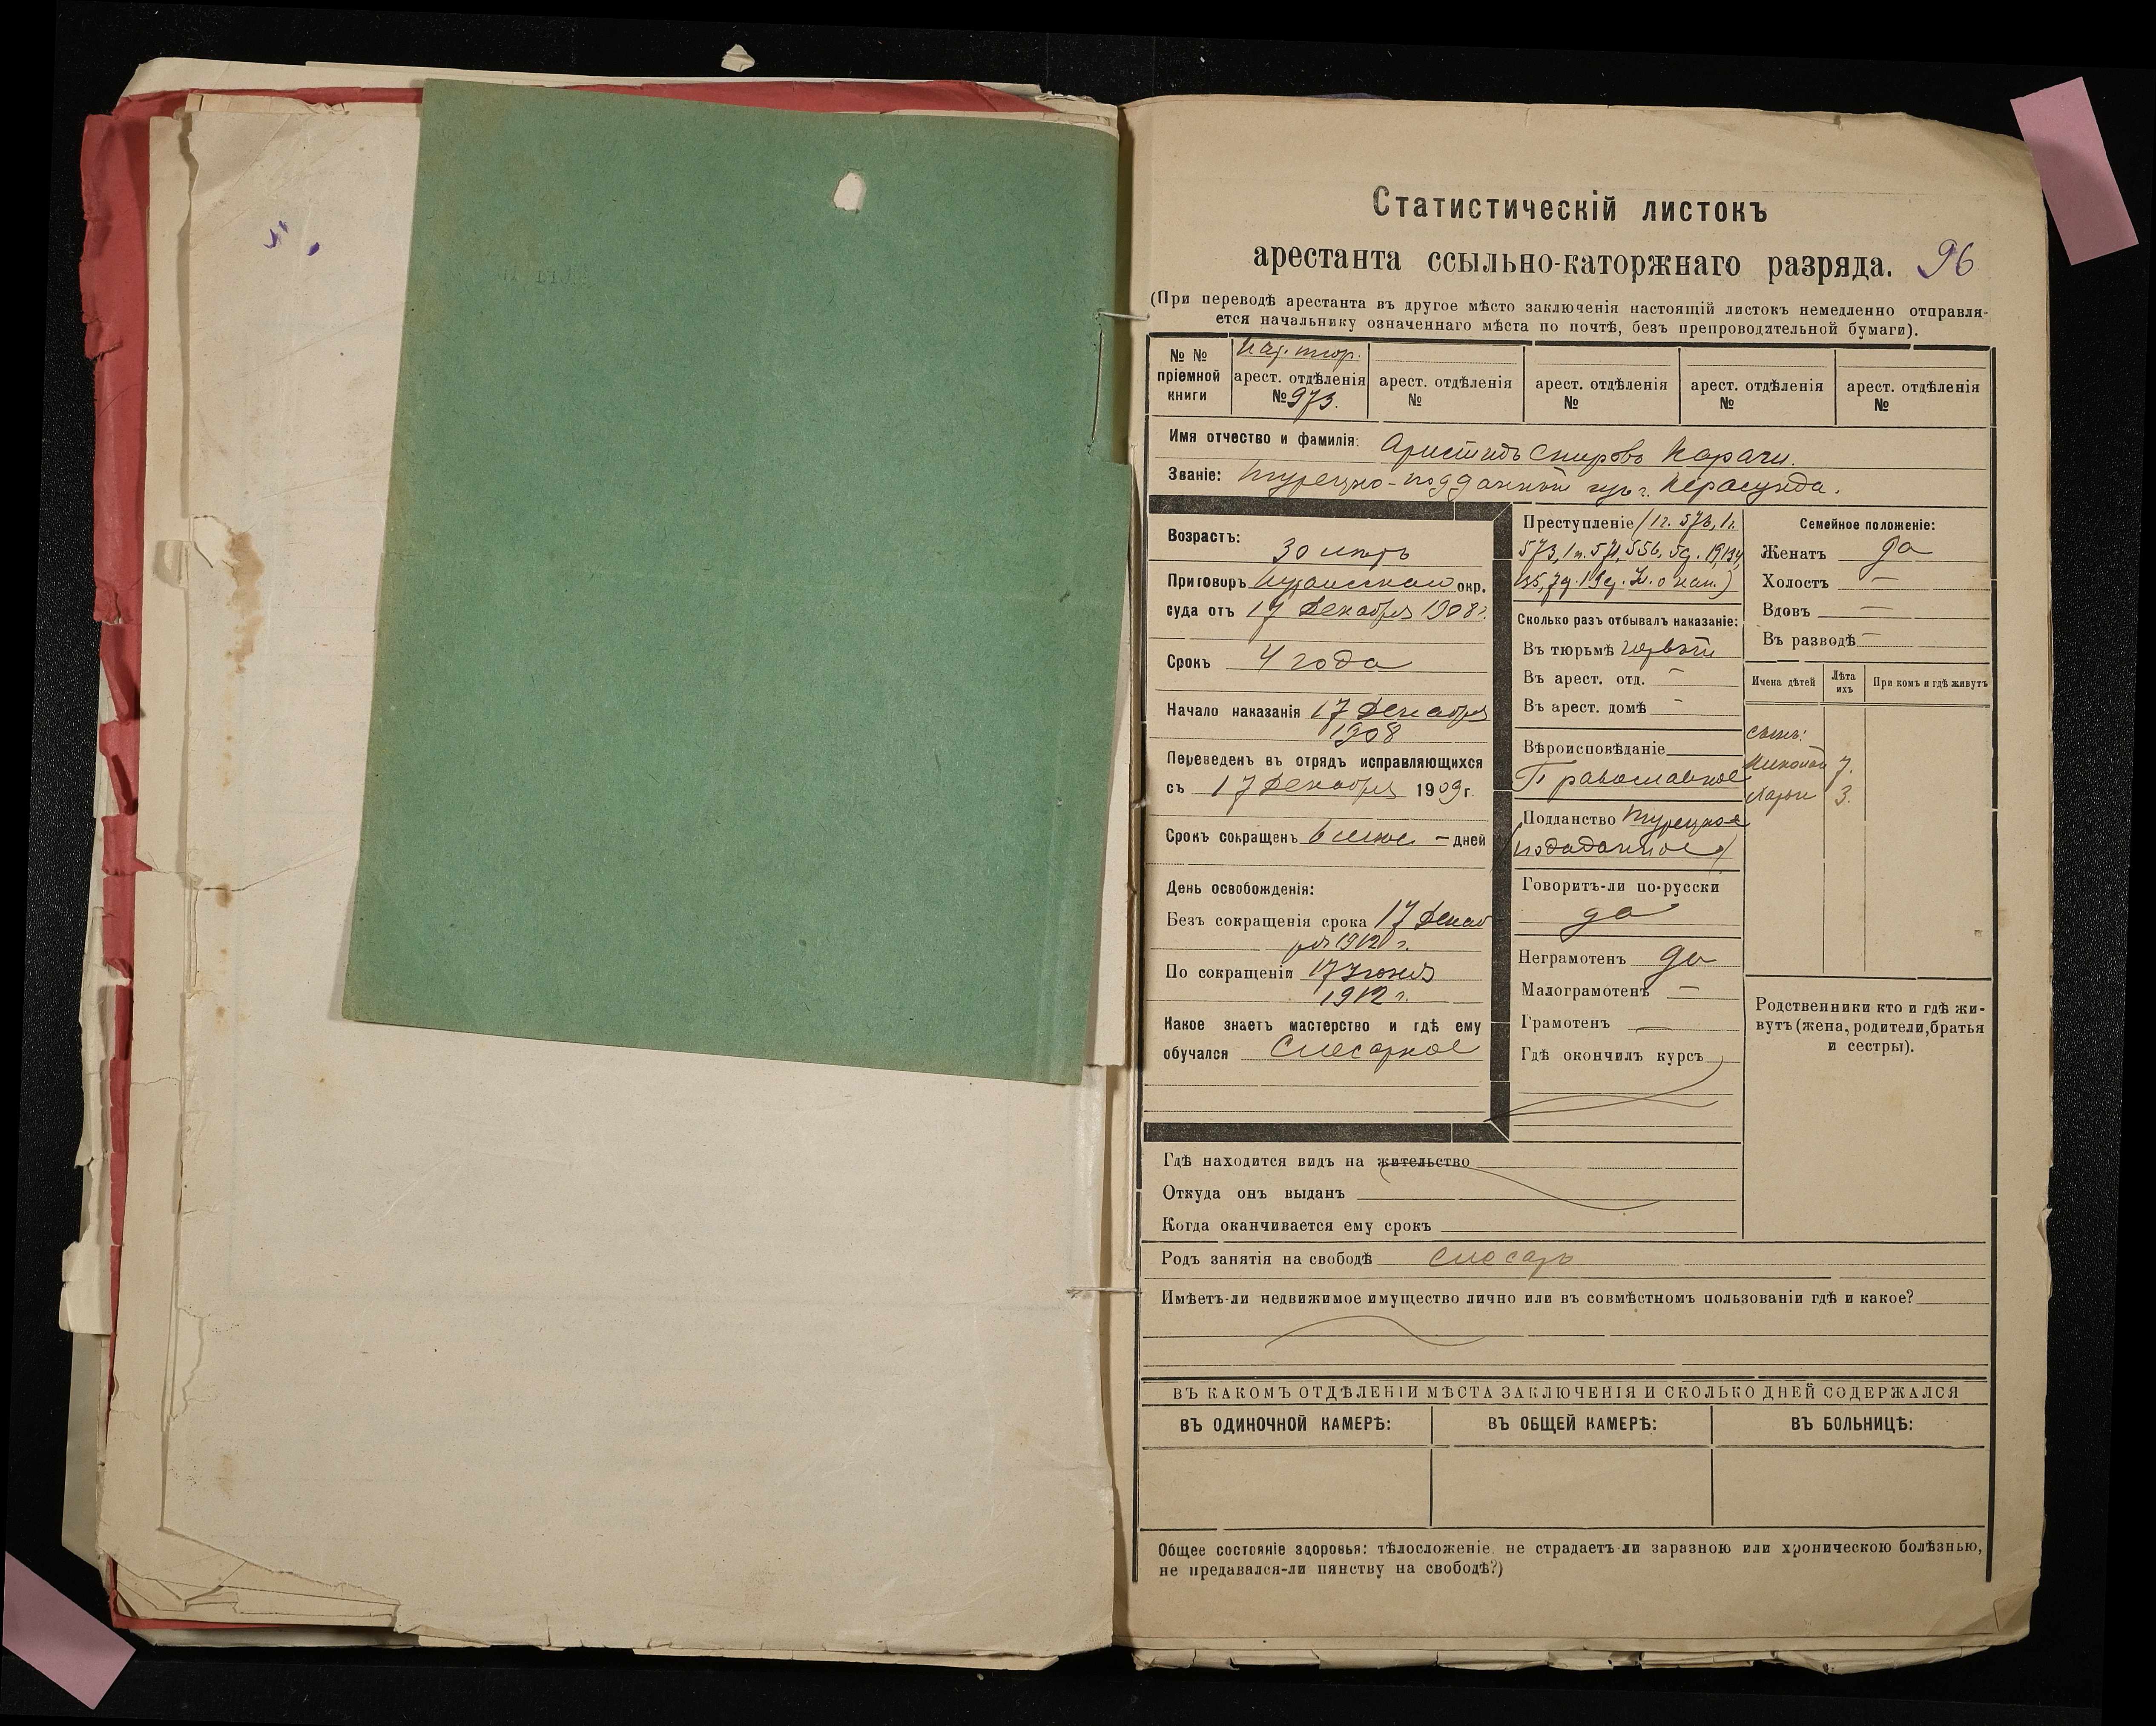 Статистическій листокъ
арестанта ссыльно-каторжнаго разряда. 96
(При переводѣ арестанта въ другое мѣсто заключенія настоящій листокъ немедленно отправля-
ется начальнику означеннаго мѣста по почтѣ, безъ препроводительной бумаги).
№ № пріемной книги
арест. отдѣленія № 973.
арест. отдѣленія №
арест. отдѣленія №
арест. отдѣленія №
арест. отдѣленія №
Имя отчество и фамилія: Аристидъ Спировъ Карачи.
Званіе: турецко-подданный гор. Керасунда.
Возрастъ:
30 лѣтъ
Приговоръ Кутаисскаго окр.
суда отъ 17 Декабря 1908 г.
Срокъ 4 года
Начало наказанія 17 Декабря
1908
Переведенъ въ отрядъ исправляющихся
съ 17 Декабря 1909 г.
Срокъ сокращенъ 6 мѣс. — дней
День освобожденія:
Безъ сокращенія срока 17 Декаб
ря 1912 г.
По сокращеніи 17 Іюня
1912 г.
Какое знаетъ мастерство и гдѣ ему
обучался Слесарное
Преступленіе
Сколько разъ отбывалъ наказаніе:
Въ тюрьмѣ первый
Въ арест. отд. —
Въ арест. домѣ —
Вѣроисповѣданіе
Православное
Подданство Турецкое
Говоритъ-ли по-русски
да
Неграмотенъ да
Малограмотенъ —
Грамотенъ —
Гдѣ окончилъ курсъ
Семейное положеніе:
Женатъ да
Холостъ —
Вдовъ —
Въ разводѣ —
Имена дѣтей Лѣта ихъ При комъ и гдѣ живутъ
Николай 7.
3.
Родственники кто и гдѣ жи-
вутъ (жена, родители, братья
и сестры).
Гдѣ находится видъ на жительство
Откуда онъ выданъ
Когда оканчивается ему срокъ
Родъ занятія на свободѣ слесарь
Имѣетъ-ли недвижимое имущество лично или въ совмѣстномъ пользованіи гдѣ и какое?
ВЪ КАКОМЪ ОТДѢЛЕНІИ МѢСТА ЗАКЛЮЧЕНІЯ И СКОЛЬКО ДНЕЙ СОДЕРЖАЛСЯ
ВЪ ОДИНОЧНОЙ КАМЕРѢ: ВЪ ОБЩЕЙ КАМЕРѢ: ВЪ БОЛЬНИЦѢ:
Общее состояніе здоровья: тѣлосложеніе, не страдаетъ-ли заразною или хроническою болѣзнью,
не предавался-ли пянству на свободѣ?)